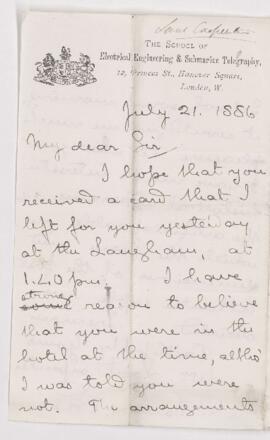 The School of
Electrical Engineering & Submarine Telegraphy,
12, Princes St., Hanover Square,
London, W.
July 21. 1886
My dear Sir,
I hope that you
received a card that I
left for you yesterday
at the Langham, at
1.40 p.m. I have
strong
reason to believe
that you were in the
hotel at the time, altho'
I was told you were
not. The arrangements